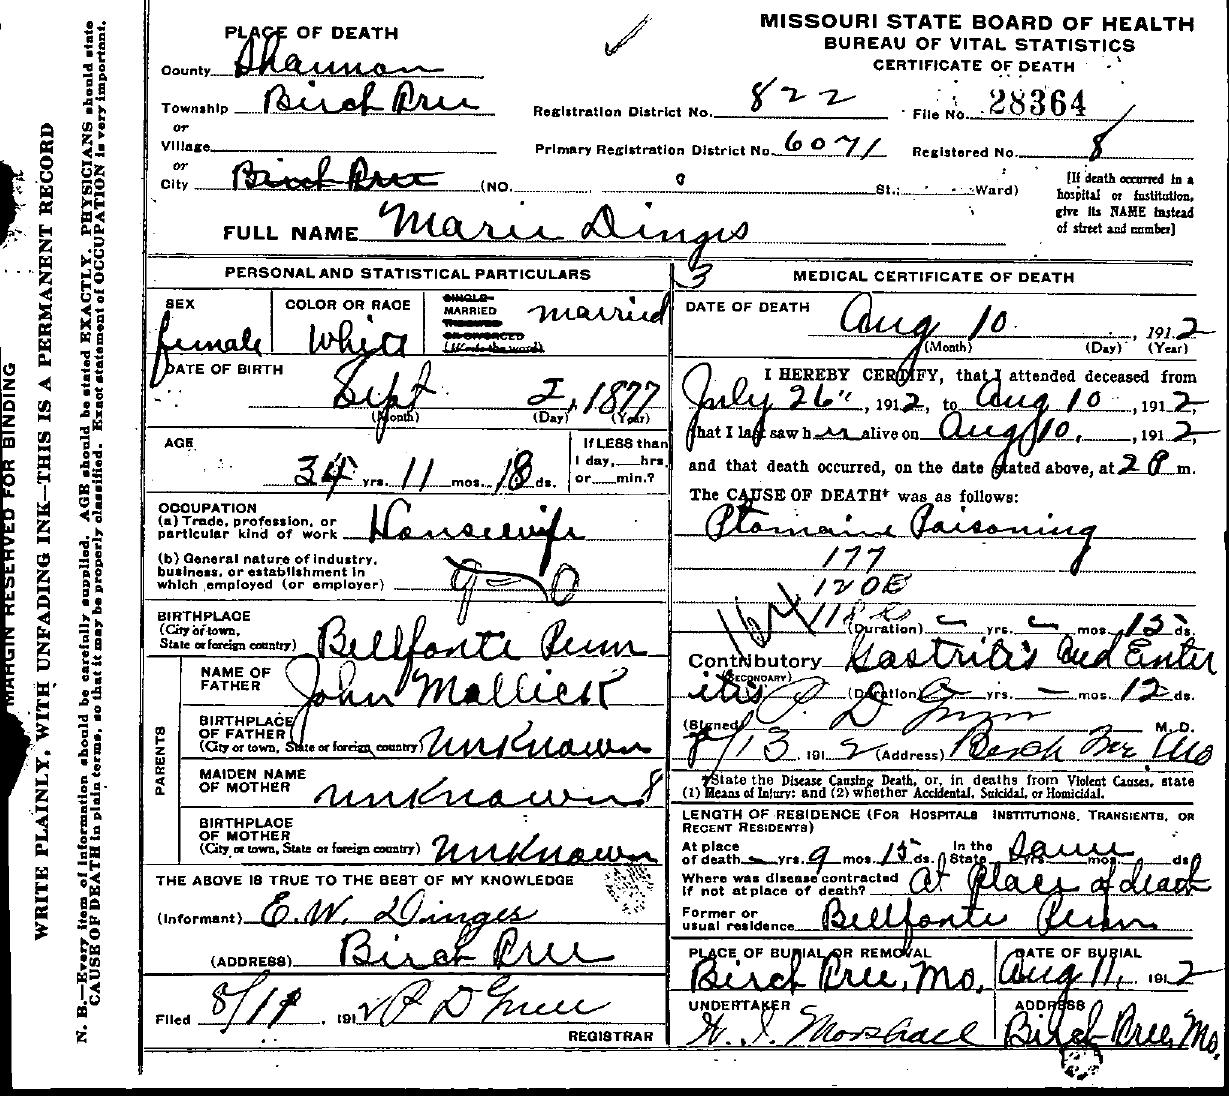 MISSOURI STATE BOARD OF HEALTH
BUREAU OF VITAL STATISTICS
CERTIFICATE OF DEATH
PLACE OF DEATH
County Shannon
Township Birch Tree
or
Village
or
City Birch Tree (NO. St.; Ward)
Registration District No. 822
File No. 28364
Primary Registration District No. 6071
Registered No. 8
[If death occurred in a
hospital or institution,
give its NAME instead
of street and number]
FULL NAME Marie Dinges
PERSONAL AND STATISTICAL PARTICULARS
SEX
female
COLOR OR RACE
White
SINGLE
MARRIED
WIDOWED
OR DIVORCED
(Write the word)
married
DATE OF BIRTH
Sept 2, 1877
(Month) (Day) (Year)
AGE
34 yrs. 11 mos. 18 ds.
If LESS than
1 day, hrs.
or min.?
OCCUPATION
(a) Trade, profession, or
particular kind of work Housewife
(b) General nature of industry,
business, or establishment in
which employed (or employer) 9-0
BIRTHPLACE
(City or town,
State or foreign country) Bellfonte Penn
PARENTS
NAME OF
FATHER John Mallick
BIRTHPLACE
OF FATHER
(City or town, State or foreign country) unknown
MAIDEN NAME
OF MOTHER unknown 8
BIRTHPLACE
OF MOTHER
(City or town, State or foreign country) unknown
THE ABOVE IS TRUE TO THE BEST OF MY KNOWLEDGE
(Informant) E.W. Dinges
(ADDRESS) Birch Tree
Filed 8/14, 1912
REGISTRAR
3
MEDICAL CERTIFICATE OF DEATH
DATE OF DEATH
Aug 10, 1912
(Month) (Day) (Year)
I HEREBY CERTIFY, that I attended deceased from
July 26", 1912, to Aug 10, 1912,
that I last saw her alive on Aug 10, 1912
and that death occurred, on the date stated above, at 2 P m.
The CAUSE OF DEATH* was as follows:
Ptomaine Poisoning
177
120B
164 118
(Duration) yrs. mos. 15 ds.
Contributory Gastritis and Enter
(SECONDARY)
itis (Duration) yrs. mos. 12 ds.
(Signed) M.D.
8/13 1912 (Address) Birch Tree Mo
*State the Disease Causing Death, or, in deaths from Violent Causes, state
(1) Means of Injury; and (2) whether Accidental, Suicidal, or Homicidal.
LENGTH OF RESIDENCE (FOR HOSPITALS INSTITUTIONS, TRANSIENTS, OR
RECENT RESIDENTS)
At place
of death yrs. 9 mos. 15 ds.
In the
State Same yrs. mos. ds.
Where was disease contracted
if not at place of death? At place of death
Former or
usual residence Bellfonte Penn
PLACE OF BURIAL OR REMOVAL
Birch Tree, Mo.
DATE OF BURIAL
Aug 11, 1912
UNDERTAKER
Morshall
ADDRESS
Birch Tree, Mo.
MARGIN RESERVED FOR BINDING
WRITE PLAINLY, WITH UNFADING INK—THIS IS A PERMANENT RECORD
N. B.—Every item of information should be carefully supplied. AGE should be stated EXACTLY. PHYSICIANS should state
CAUSE OF DEATH in plain terms, so that it may be properly classified. Exact statement of OCCUPATION is very important.